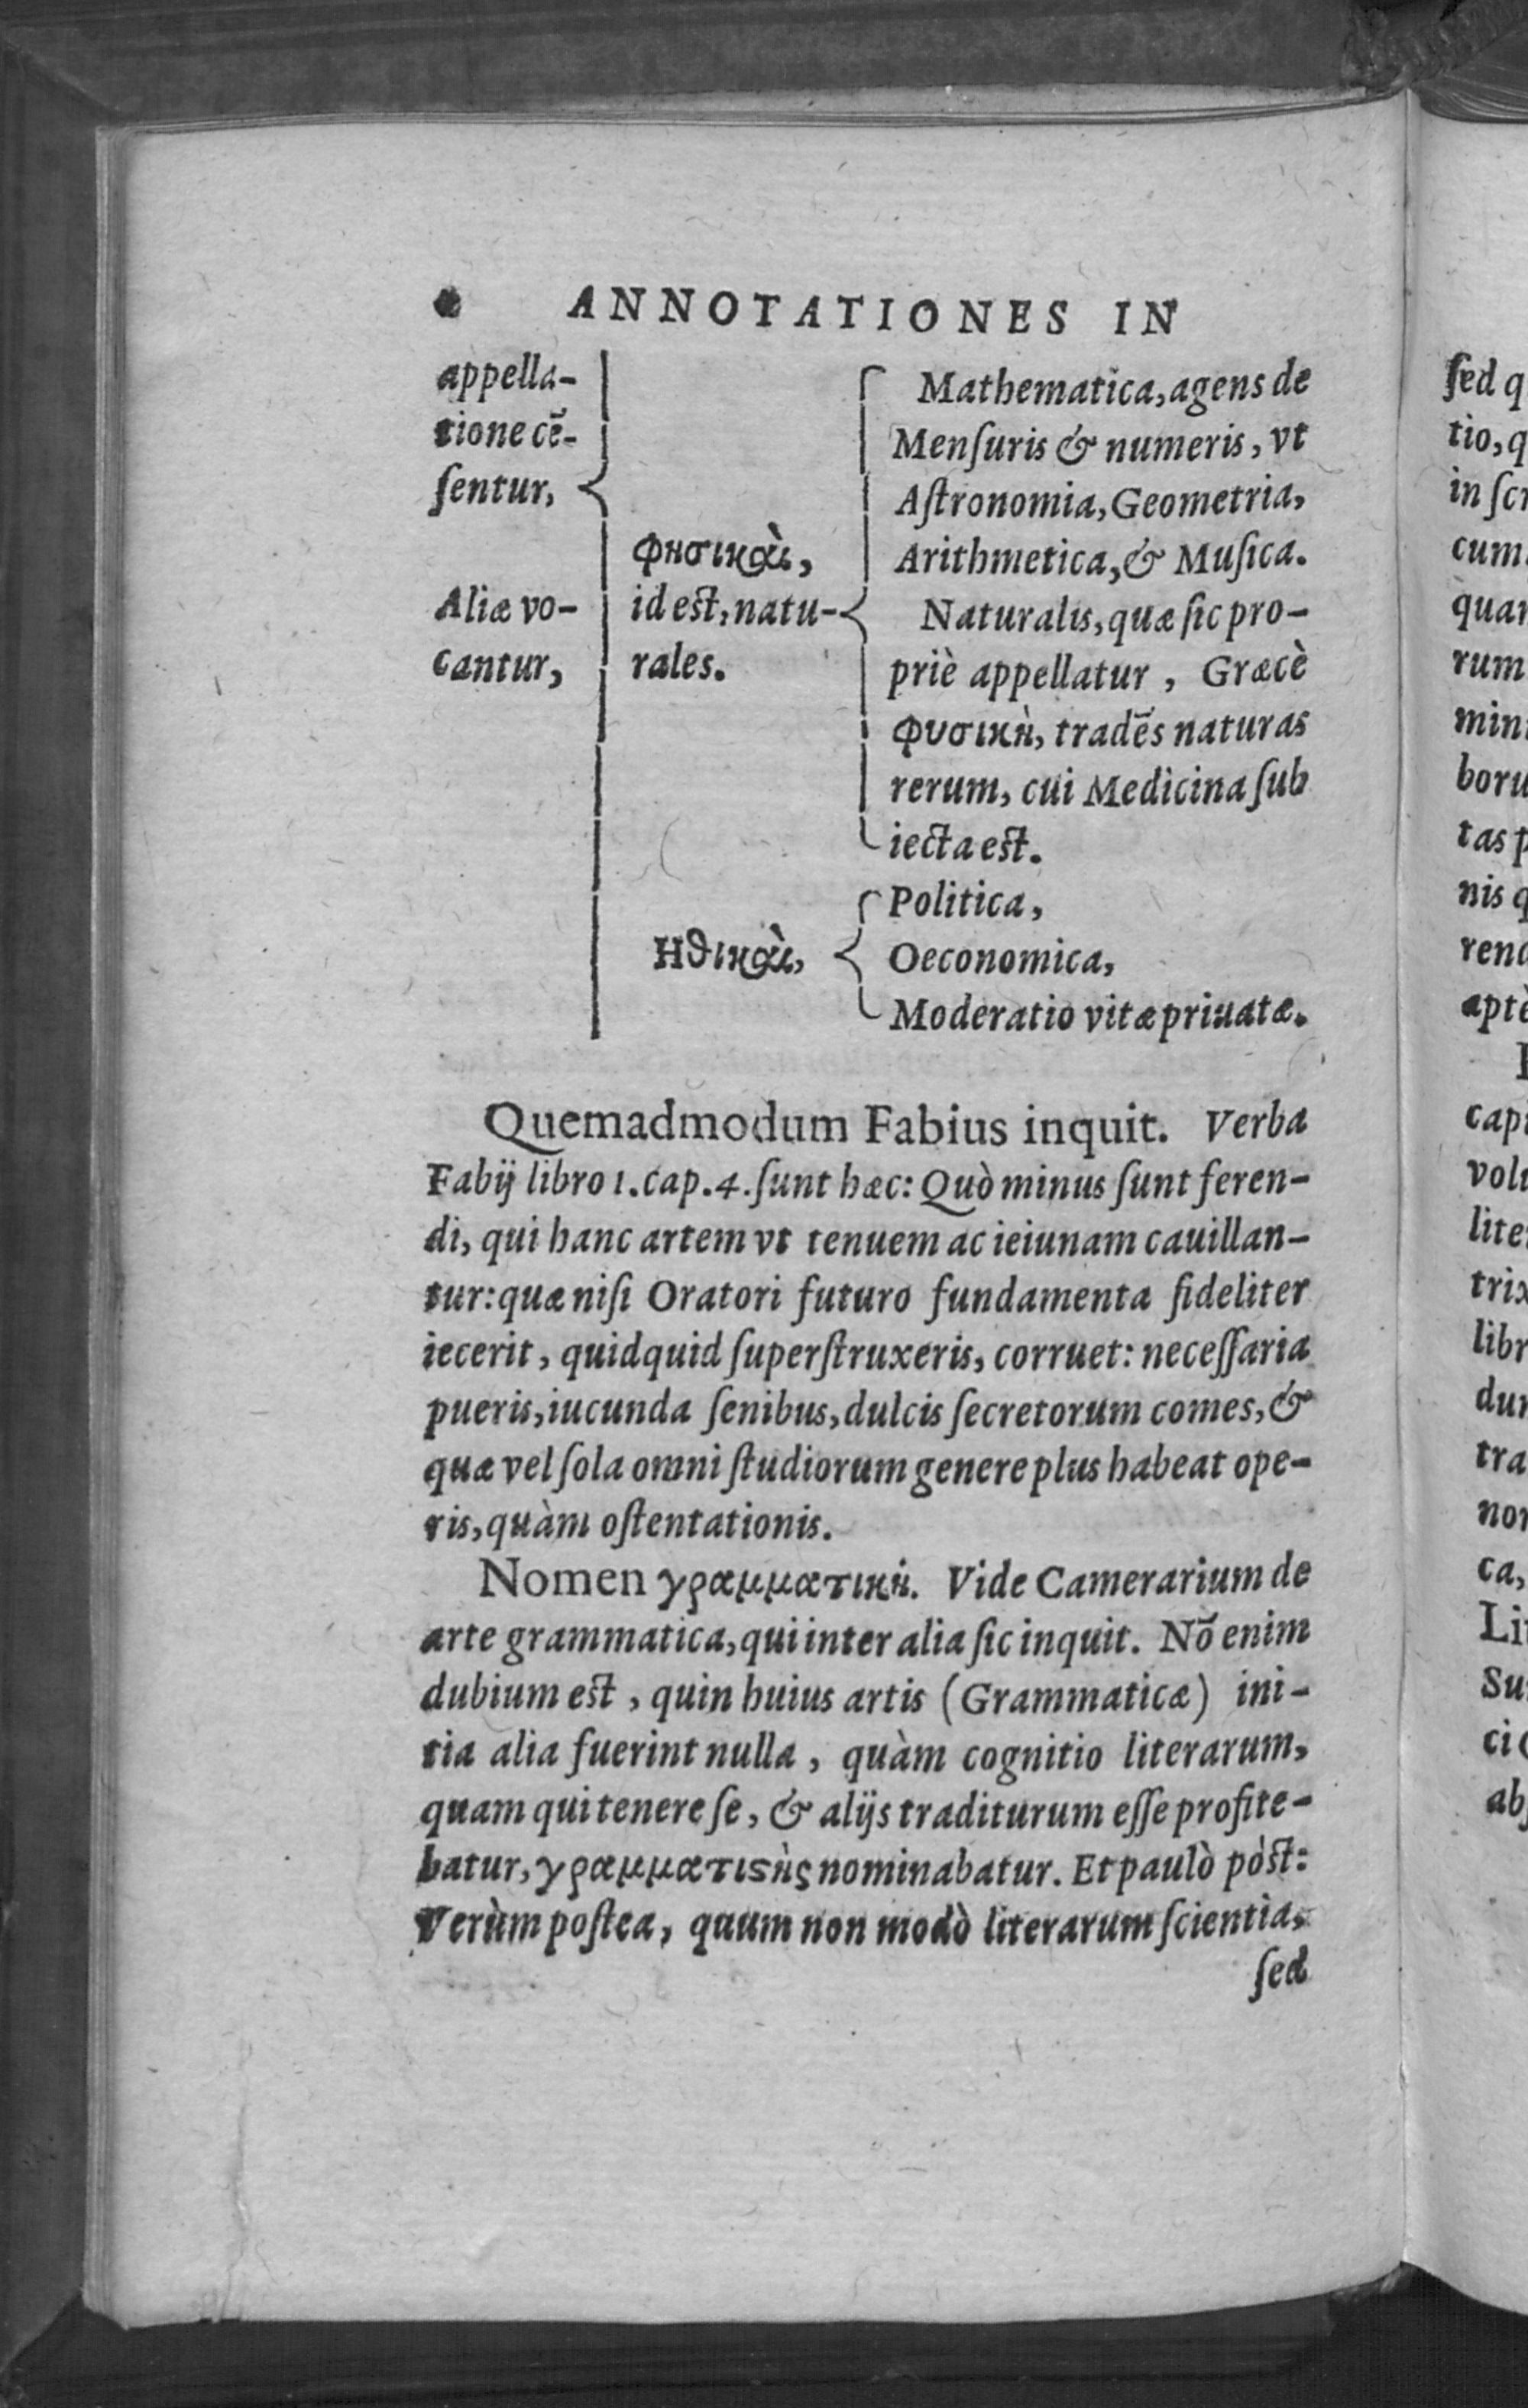 ANNOTATIONES IN
appella-
tione cẽ-
ſentur,
Aliæ vo-
cantur,
φησικαὶ,
id est, natu-
rales.
Mathematica, agens de
Menſuris & numeris, vt
Aſtronomia, Geometria,
Arithmetica, & Muſica.
Naturalis, quæ ſic pro-
priè appellatur, Græcè
φυσικὴ, tradẽs naturas
rerum, cui Medicina ſub
iecta est.
Ηθικαὶ,
Politica,
Oeconomica,
Moderatio vitæ priuatæ.
Quemadmodum Fabius inquit. Verba
Fabij libro 1. cap. 4. ſunt hæc: Quò minus ſunt feren-
di, qui hanc artem vt tenuem ac ieiunam cauillan-
tur: quæ niſi Oratori futuro fundamenta fideliter
iecerit, quidquid ſuperſtruxeris, corruet: neceſſaria
pueris, iucunda ſenibus, dulcis ſecretorum comes, &
quæ vel ſola omni ſtudiorum genere plus habeat ope-
ris, quàm oſtentationis.
Nomen γραμματικὴ. Vide Camerarium de
arte grammatica, qui inter alia ſic inquit. Nõ enim
dubium est, quin huius artis (Grammaticæ) ini-
tia alia fuerint nulla, quàm cognitio literarum,
quam qui tenere ſe, & alijs traditurum eſſe profite-
batur, γραμματιϛὴς nominabatur. Et paulò pòst:
Verùm poſtea, quum non modò literarum ſcientia,
ſed
ſed q
tio, q
in ſcr
cum
quar
rum
min
boru
tas p
nis q
rend
aptè
capi
volu
lite
trix
libr
dur
tra
nor
ca,
Lit
Su
ci
abſ